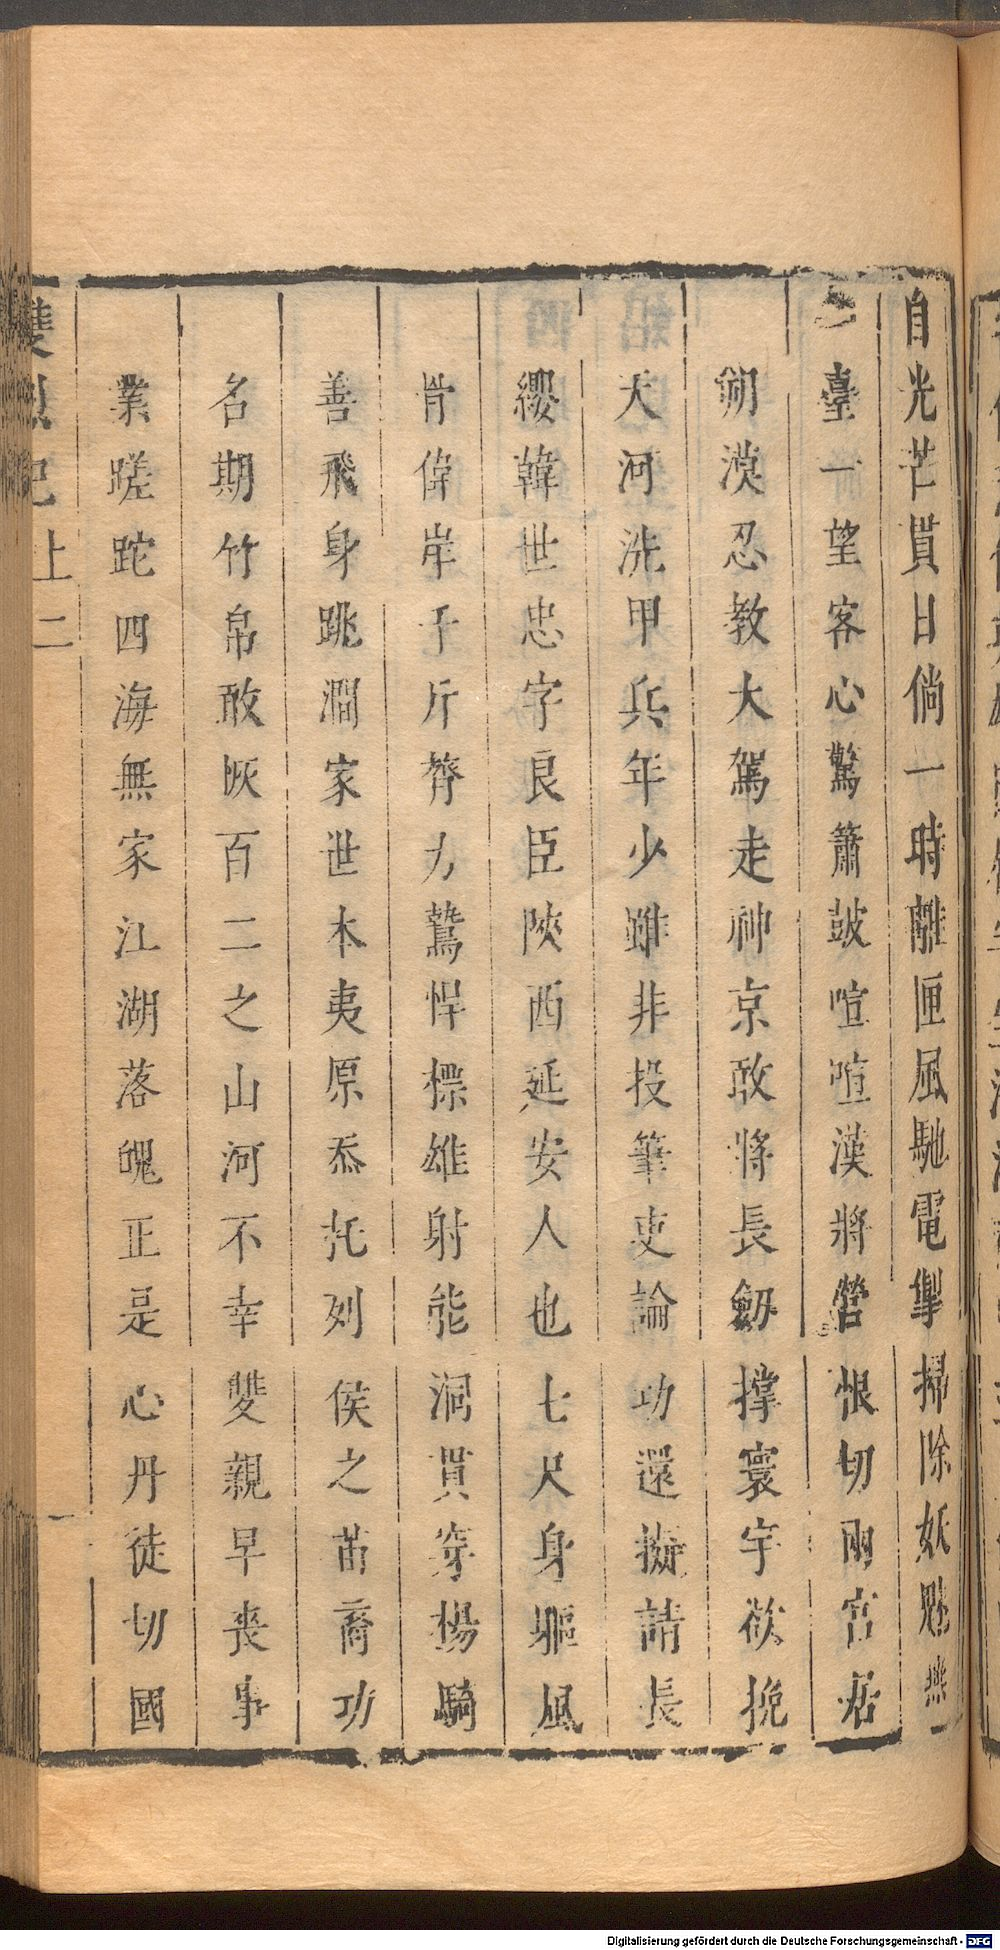 自光芒貫日倘一時離匣風馳電掣掃除妖魁燕
臺一望客心驚簫鼓喧喧漢將營恨切兩宮居
朔漠忍教大駕走神京敢將長劒撐寰宇欲挽
天河洗甲兵年少雖非投筆吏論功還擬請長
纓韓世忠字良臣陝西延安人也七尺身軀風
骨偉岸千斤膂力驁悍標雄射能洞貫穿楊騎
善飛身跳澗家世木夷原忝托列侯之苗裔功
名期竹帛敢恢百二之山河不幸雙親早喪事
業蹉跎四海無家江湖落魄正是心丹徒切國
雙烈記 上 二
Digitalisierung gefördert durch die Deutsche Forschungsgemeinschaft - DFG